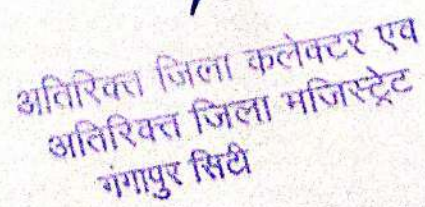 अतिरिक्त जिला कलेक्टर एव
अतिरिक्त जिला मजिस्ट्रेट
गंगापुर सिटी